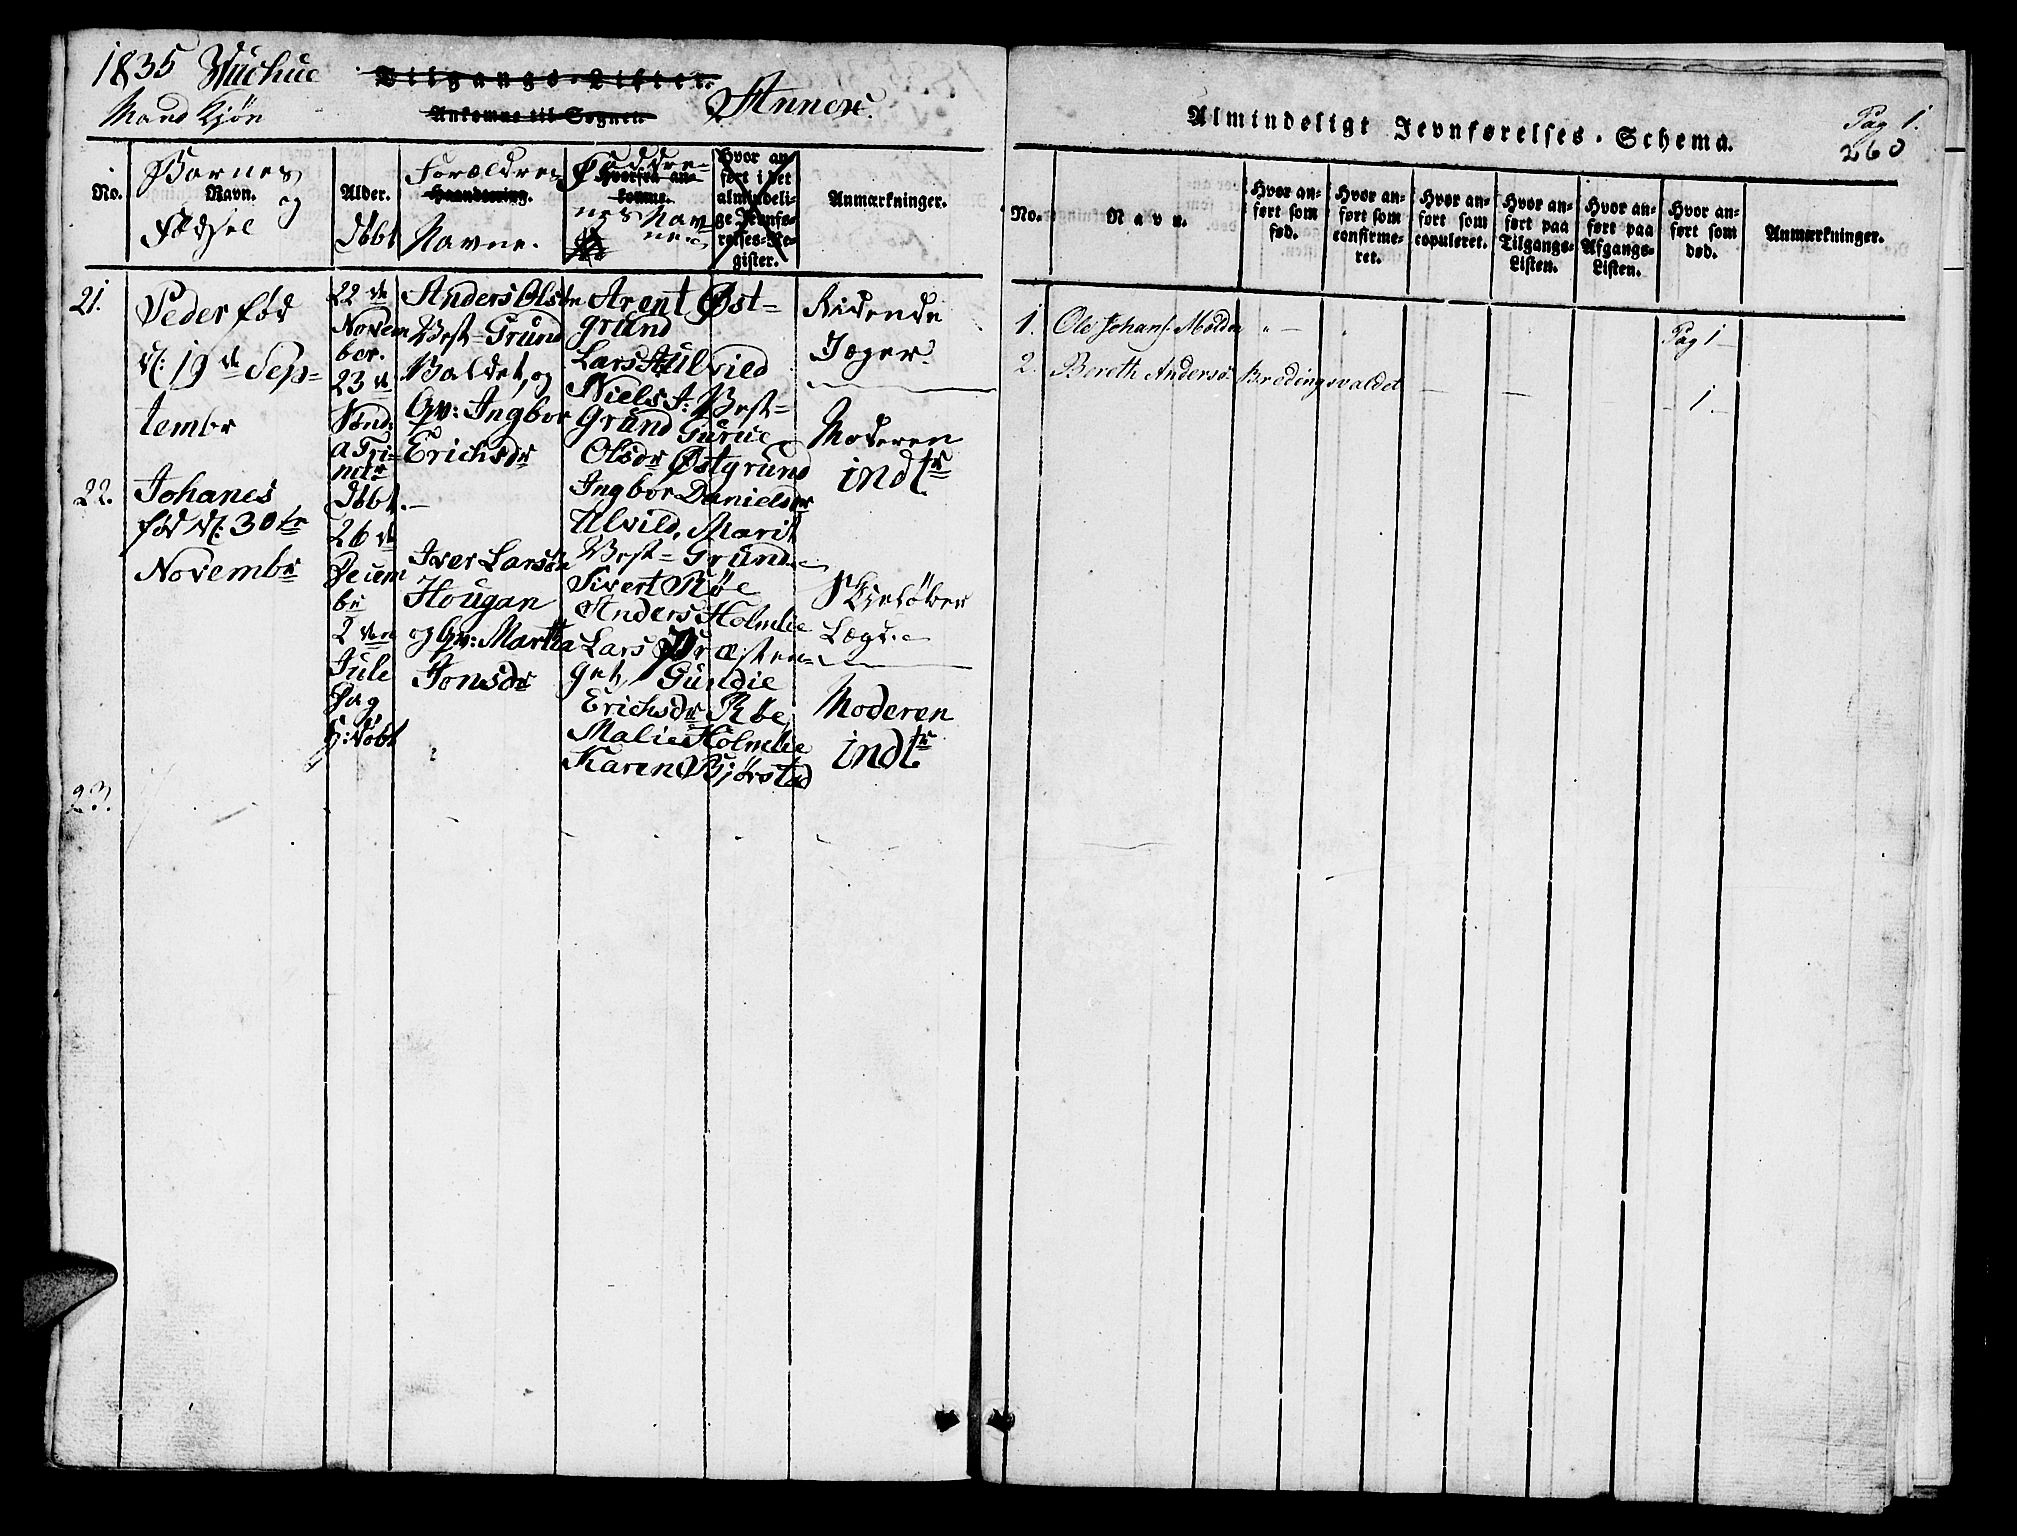 1835
Mand Kjön
Tilgangs-Lister.
Ankomne til Sognet
Annex.
No.
Barnes
Navn.
og
Fødsel
Alder.
Døbt
Forældres
Haandtering.
Navne.
Faddre-
Hvorfra an-
komne.
nes Nav
ne
Hvor an-
ført i det
almindeli-
ge Jevnfø-
relses-Re-
gister.
Anmærkninger.
21.
Peder fød
d: 19de Sep=
tembr
22de
Novem
ber.
23de
Sønd.
a Tri-
nets
Anders Olsön
Vest=Grund
Valdet, og
Gv: Ingbor
Erichsdr
Arent Øst=
grund
Lars Ulvild
Niels J: Vest=
Grund Gurue
Olsdr Østgrund
Ingbor Danielsdr
Ulvild, Marit
Vest=Grund
Ridende
Jæger
Moderen
indtr
22.
Johanes
fød d: 30te
Novembr
Døbt.
26de
Decem
br
2den
Jule
Dag
H: Døbt
Iver Larsön
Hougan
og Gv: Martha
Jonsdr
Sivert Röe
Anders Holmlie
Lars Præsten=
get, Guildie
Erichsdr Röe
Malie Holmlie
Karen Bjørstad
Lægd
Moderen
indtr
23.
Almindeligt Jevnførelses-Schema.
Pag 1.
260
No.
Navn.
Hvor an-
ført som
fød.
Hvor an-
ført som
confirme-
ret.
Hvor an-
ført som
copuleret.
Hvor an-
ført paa
Tilgangs-
Listen.
Hvor an-
ført paa
Afgangs-
Listen.
Hvor an-
ført som
død.
Anmærkninger.
1. Ole Johans. Melden " — " Pag 1 —
2. Bereth Andersd. Bredingsvaldet — — - 1. -